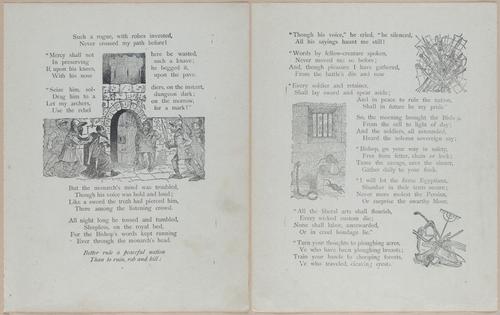 Such a rogue, with robes invested,
Never crossed my path before!
"Mercy shall not here be wasted,
In preserving such a knave;
If upon his knees, he begged it,
With his nose upon the pave.
"Seize him, soldiers, on the instant,
Drag him to a dungeon dark;
Let my archers, on the morrow,
Use the rebel for a mark!"
But the monarch's mind was troubled,
Though his voice was bold and loud;
Like a sword the truth had pierced him,
There among the listening crowd.
All night long he tossed and tumbled,
Sleepless, on the royal bed,
For the Bishop's words kept running
Ever through the monarch's head.
Better rule a peaceful nation
Than to ruin, rob and kill:
"Though his voice," he cried, "be silenced,
All his sayings haunt me still!
"Words by fellow-creature spoken,
Never moved me so before;
And, though pleasure I have gathered,
From the battle's din and roar
"Every soldier and retainer,
Shall lay sword and spear aside;
And in peace to rule the nation,
Shall in future be my pride."
So, the morning brought the Bishop
From the cell to light of day;
And the soldiers, all astounded,
Heard the solemn sovereign say:
"Bishop, go your way in safety,
Free from fetter, chain or lock;
Tame the savage, save the sinner,
Gather daily to your flock.
"I will let the
Egyptians,
Slumber in their tents secure;
Never more molest the Persian,
Or surprise the swarthy Moor.
"All the liberal arts shall flourish,
Every wicked custom die;
None shall labor, unrewarded,
Or in cruel bondage lie."
"Turn your thoughts to ploughing acres,
Ye who have been ploughing breasts;
Train your hands to chopping forests,
Ye who traveled, cleaving crests.